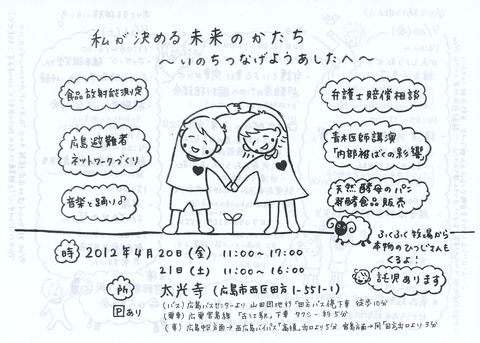 私が決める未来のかたち
〜いのちつなげようあしたへ〜
食品放射能測定
広島避難者
ネットワークづくり
音楽と踊り♪
弁護士賠償相談
青木医師講演
「内部被ばくの影響」
天然酵母のパン
発酵食品販売
ふくふく牧場から
本物のひつじさんも
くるよ!
託児あります
時 2012年4月20日(金) 11:00〜17:00
21日(土) 11:00〜16:00
所 大光寺(広島市西区田方1-551-1)
Pあり
(バス)広島バスセンターより 山田団地行「田方バス停」下車 徒歩10分
(電車)広電宮島線 「古江駅」下車 タクシー約5分
(車)広島中区方面→西広島バイパス「高須」出口より5分 宮島方面→同「田方」出口より3分